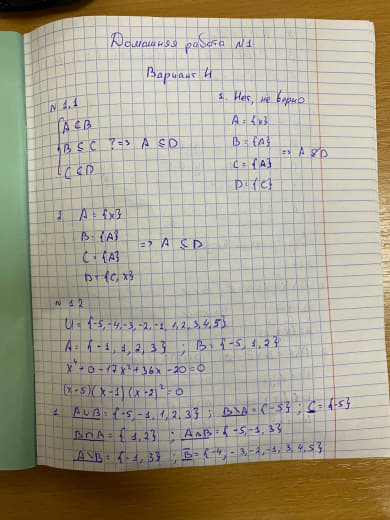 Домашняя работа N1
Вариант 4
N 1.1
A ∈ B
B ⊆ C ?=> A ⊆ D
C ⊆ D
1. Нет, не верно
A = {x}
B = {A}
C = {A} => A ⊈ D
D = {C}
2 A = {x}
B = {A}
C = {A} => A ⊆ D
D = {C, x}
N 1.2
U = {-5, -4, -3, -2, -1, 1, 2, 3, 4, 5}
A = {-1, 1, 2, 3} ; B = {-5, 1, 2}
x⁴ + 0 - 17x² + 36x - 20 = 0
(x-5)(x-1)(x-2)² = 0
1. A∪B = {-5, -1, 1, 2, 3} ; B\A = {-5} ; C = {-5}
B∩A = {1, 2} ; A∆B = {-5, -1, 3}
A\B = {-1, 3} ; B = {-4, -3, -2, -1, 3, 4, 5}